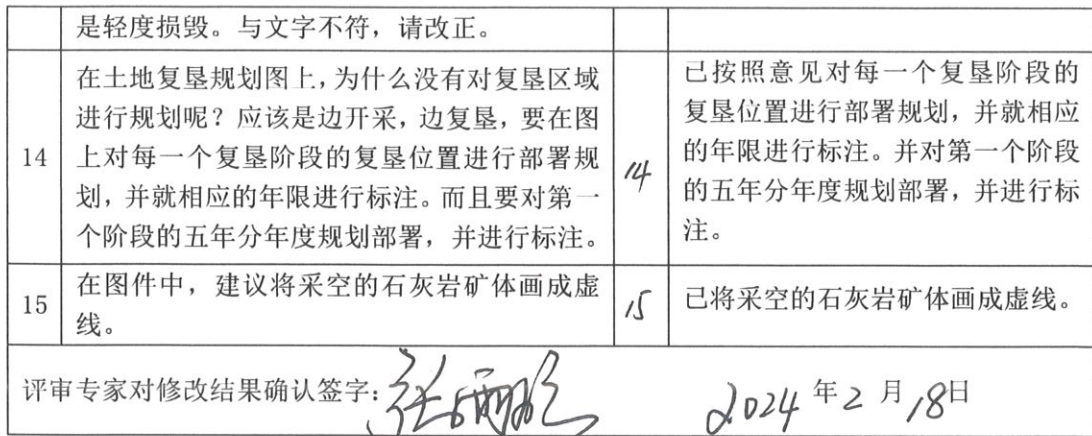 是轻度损毁。与文字不符，请改正。
14
在土地复垦规划图上，为什么没有对复垦区域
进行规划呢？应该是边开采，边复垦，要在图
上对每一个复垦阶段的复垦位置进行部署规
划，并就相应的年限进行标注。而且要对第一
个阶段的五年分年度规划部署，并进行标注。
14
已按照意见对每一个复垦阶段的
复垦位置进行部署规划，并就相应
的年限进行标注。并对第一个阶段
的五年分年度规划部署，并进行标
注。
15
在图件中，建议将采空的石灰岩矿体画成虚
线。
15
已将采空的石灰岩矿体画成虚线。
评审专家对修改结果确认签字： 2024年2月18日